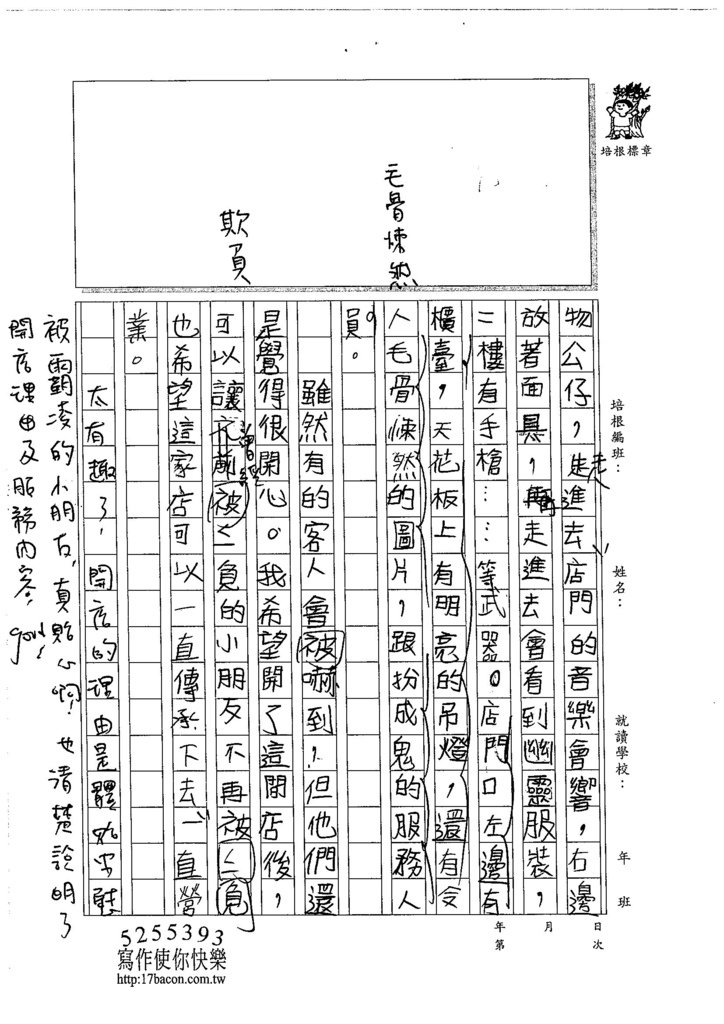 培根標章
毛骨悚然
欺負
培根編班：
姓名：
就讀學校：
年 班
年 月 日
第 次
物公仔，走進去店門的音樂會響，右邊
放著面具，再走進去會看到幽靈服裝，
二樓有手槍……等武器。店門口左邊有
櫃臺，天花板上有明亮的吊燈，還有令
人毛骨悚然的圖片，跟扮成鬼的服務人
員。
雖然有的客人會被嚇到，但他們還
是覺得很開心。我希望開了這間店後，
可以讓曾經被ㄑㄧ負的小朋友不再被ㄑㄧ負
也希望這家店可以一直傳承下去、一直營
業。
太有趣了，開店的理由是體
被霸凌的小朋友，真貼心啊！也清楚說明了
開店理由及服務內容，good！
5255393
寫作使你快樂
http:/17bacon.com.tw